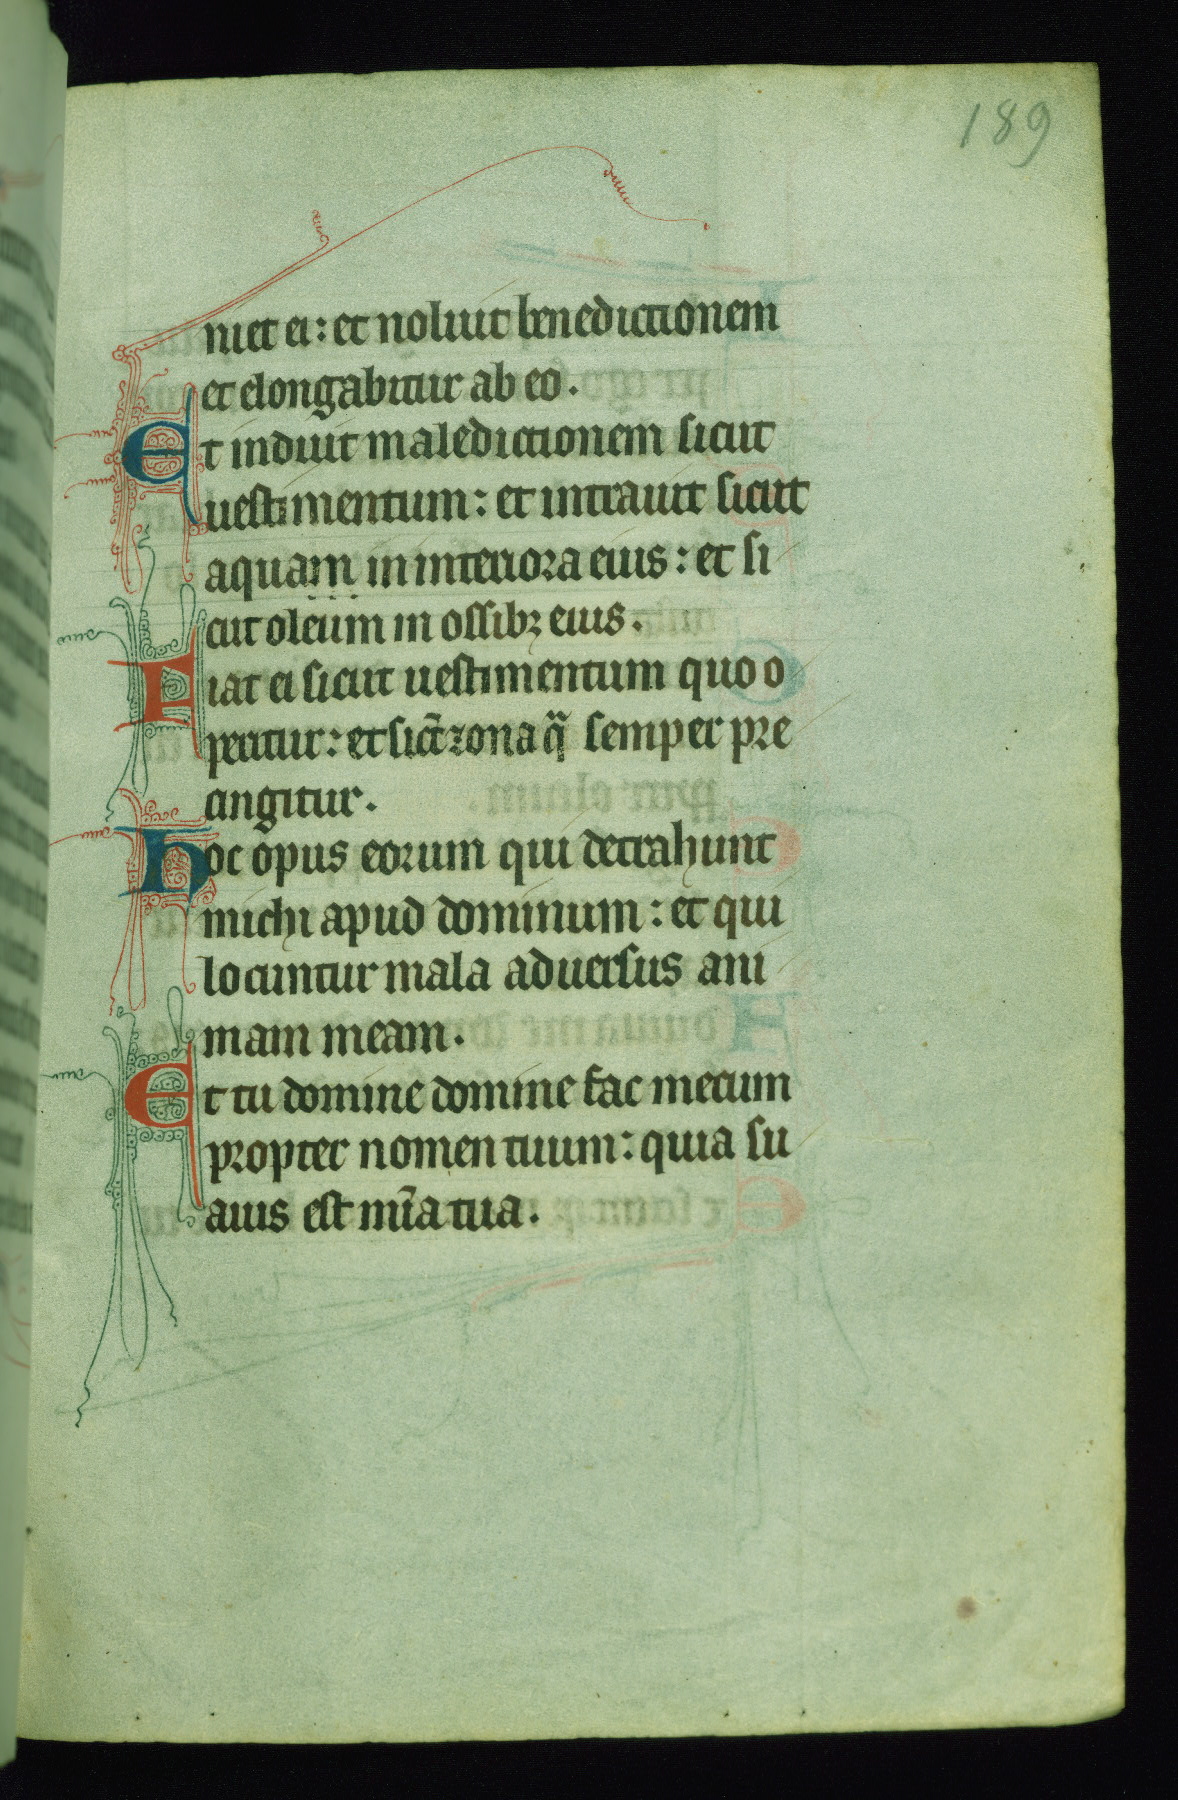 189
niet ei : et noluit benedictionem
et elongabitur ab eo .
Et induit maledictionem sicut
uestimentum : et intrauit sicut
aquam in interiora eius : et si
cut oleum in ossibꝫ eius .
Fiat ei sicut uestimentum quo o
peritur : et sic̄t zona qͣ semper pre
cingitur .
Hoc opus eorum qui detrahunt
michi apud dominum : et qui
locuntur mala aduersus ani
mam meam .
Et tu domine domine fac mecum
propter nomen tuum : quia su
auis est mīa tua .